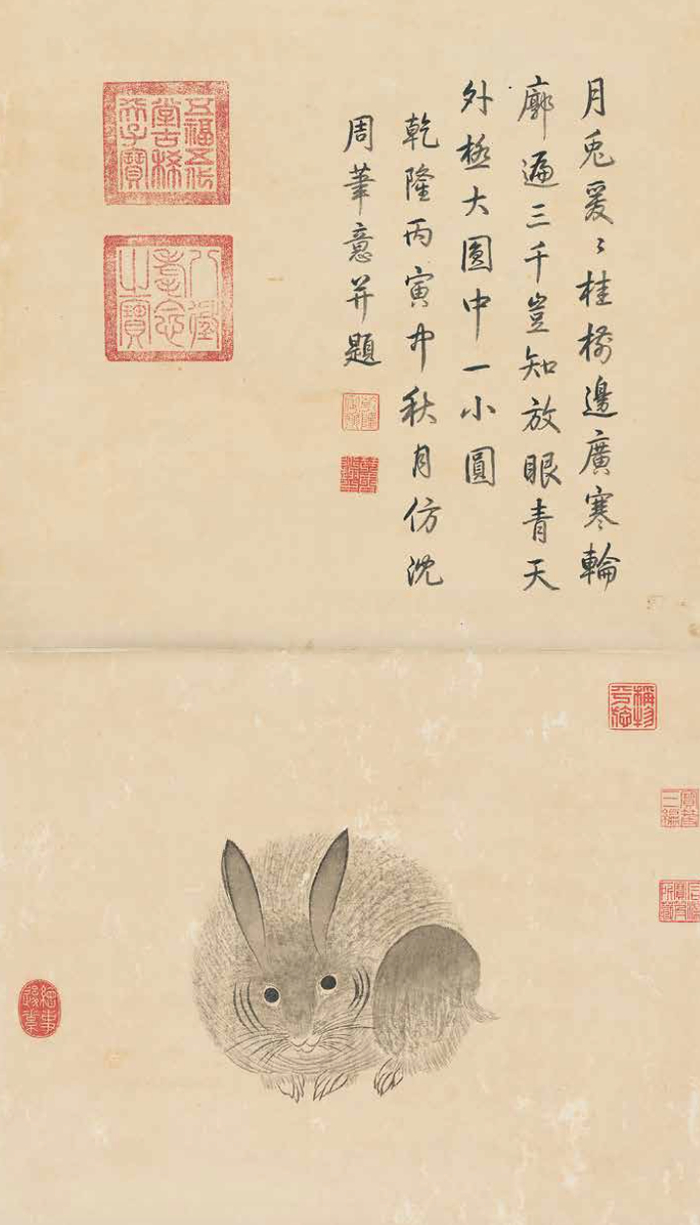 月兔爰〻桂樹邊廣寒輪
廓遍三千豈知放眼青天
外極大圓中一小圓
乾隆丙寅中秋月仿沈
周筆意并題
五福五代
堂古稀
天子寶
八徵
耄念
之寶
稱物
平施
寶笈
三編